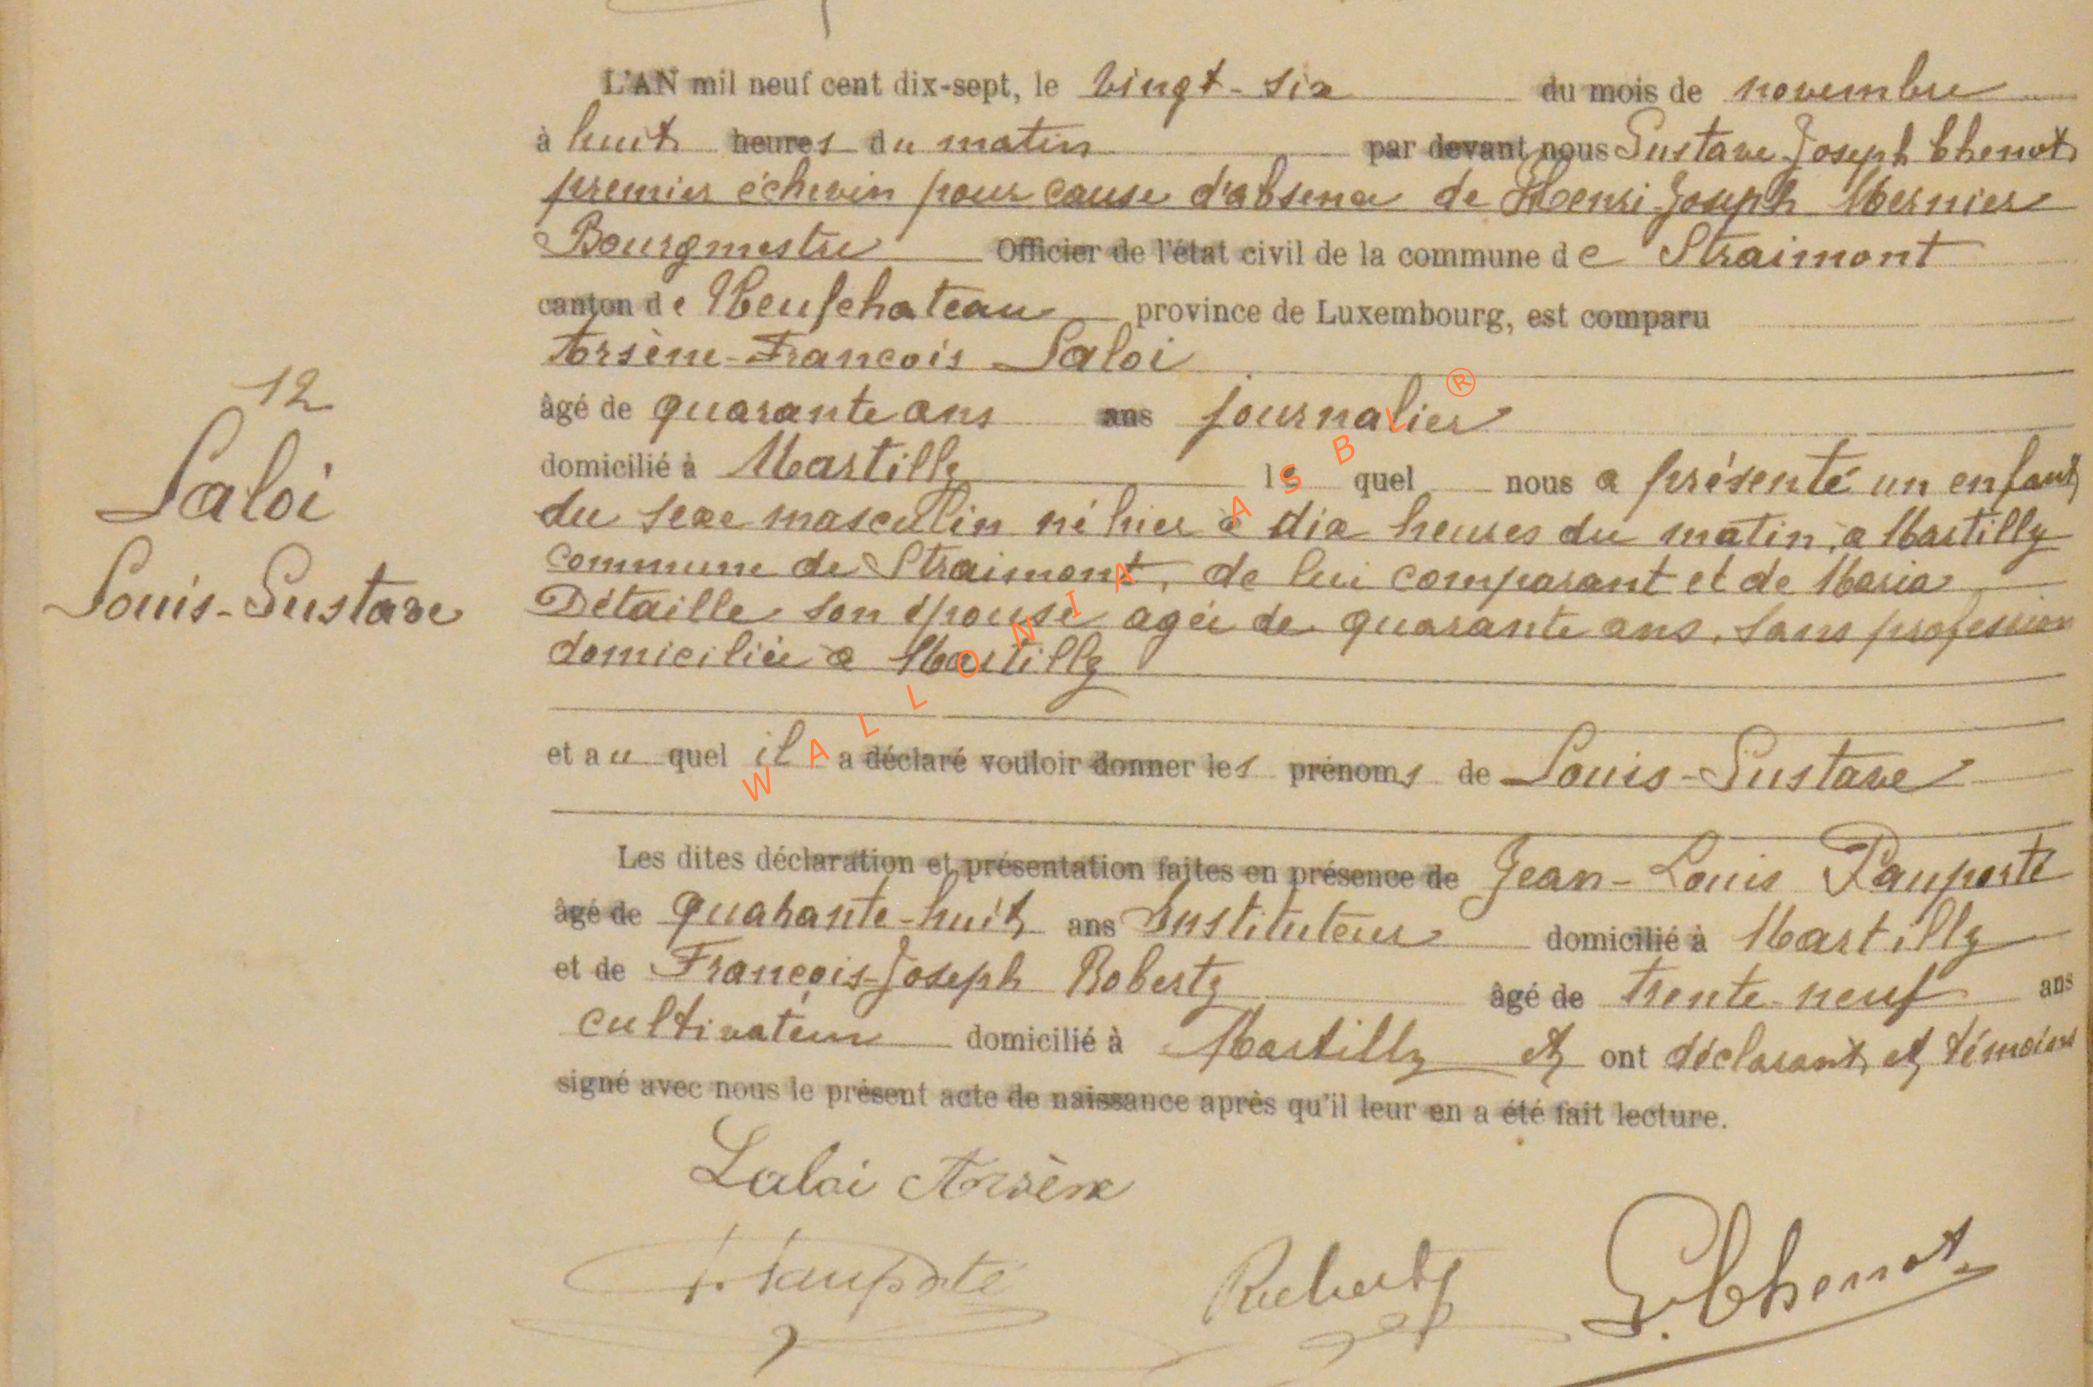 L'AN mil neuf cent dix-sept, le vingt-six du mois de novembre
à huit heures du matin par devant nous Gustave Joseph Chenot
premier échevin pour cause d'absence de Henri Joseph Mernier
Bourgmestre Officier de l'état civil de la commune de Straimont
canton de Neufchateau province de Luxembourg, est comparu
Arsène-François Laloi
âgé de quarante ans ans journalier
domicilié à Martilly lequel nous a présenté un enfant
12
Laloi
Louis-Gustave
du sexe masculin né hier à dix heures du matin, à Martilly
commune de Straimont, de lui comparant et de Maria
Détaille son épouse agée de quarante ans, sans profession
domiciliée à Martilly
et au quel il a déclaré vouloir donner les prénoms de Louis-Gustave
Les dites déclaration et présentation faites en présence de Jean-Louis Pauporté
âgé de quarante-huit ans Instituteur domicilié à Martilly
et de François-Joseph Roberty âgé de trente-neuf ans
cultivateur domicilié à Martilly et ont déclarant et témoins
signé avec nous le présent acte de naissance après qu'il leur en a été fait lecture.
Laloi Arsène
Pauporté Roberty G. Chenot
WALLONIA ASBL ®